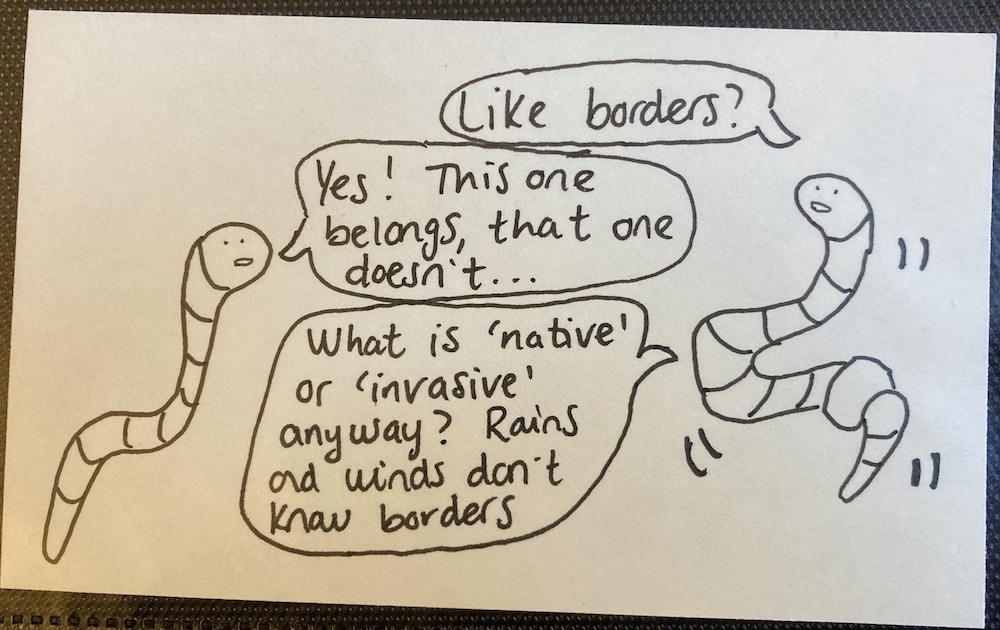 Like borders?
Yes! This one
belongs, that one
doesn't...
What is 'native'
or 'invasive'
anyway? Rains
and winds don't
know borders